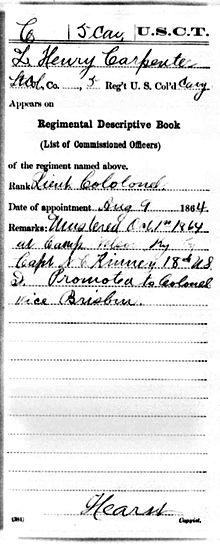 C | 5 Cav | U.S.C.T.
L. Henry Carpenter
Co. 5 Reg't U. S. Col'd Cav
Appears on
Regimental Descriptive Book
(List of Commissioned Officers)
of the regiment named above.
Rank Lieut Colonel
Date of appointment Aug 9, 1864
Remarks: Mustered Oct 1st 1864
at Camp Ky by
Capt Kinney 18th U.S.
I. Promoted to Colonel
vice Brisbin.
(384)
Copyist.